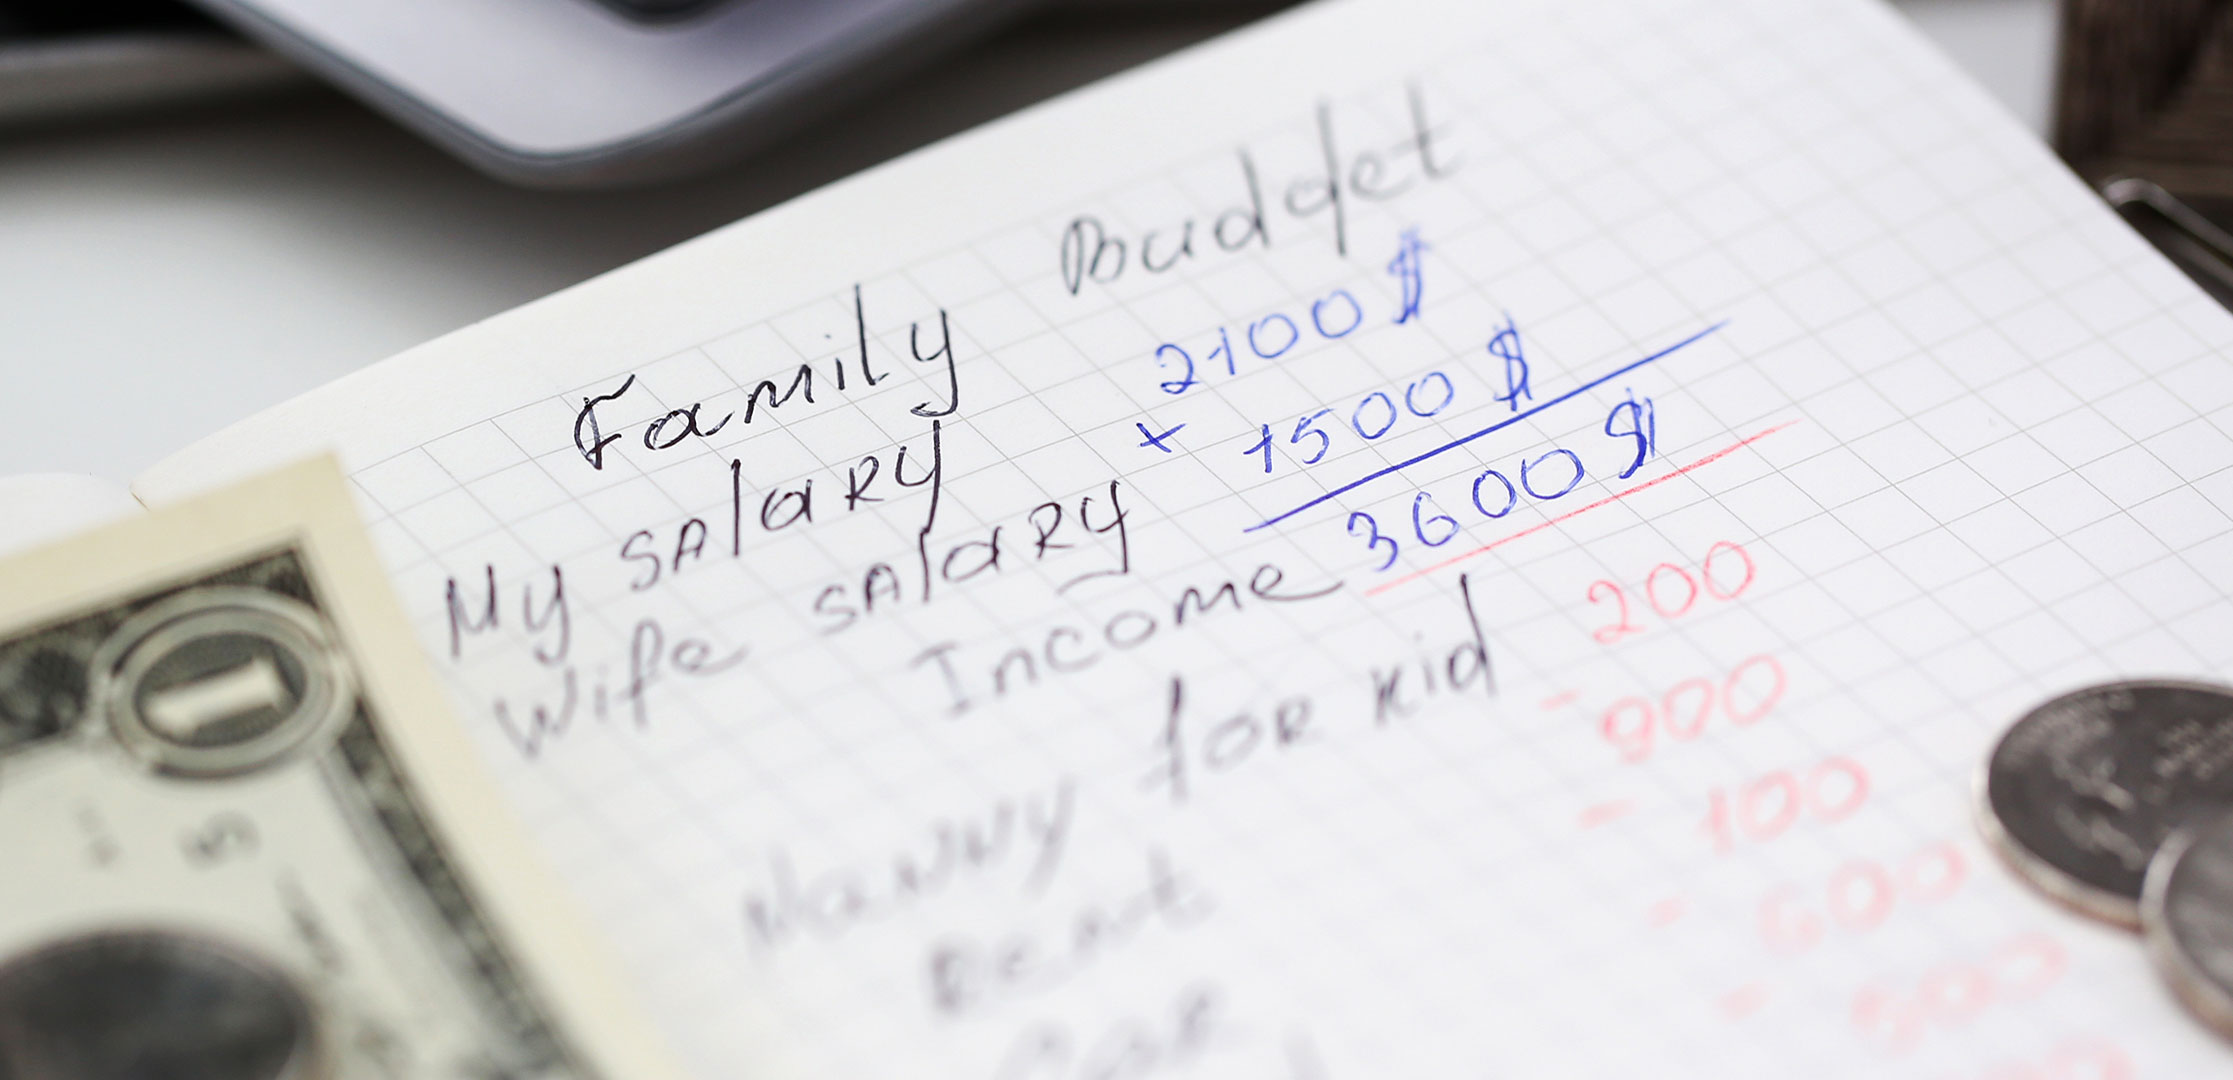 Family Budget
My salary 2100 $
Wife salary + 1500 $
Income 3600 $
Nanny for kid 200
Rent - 900
Car - 100
- 600
- 500